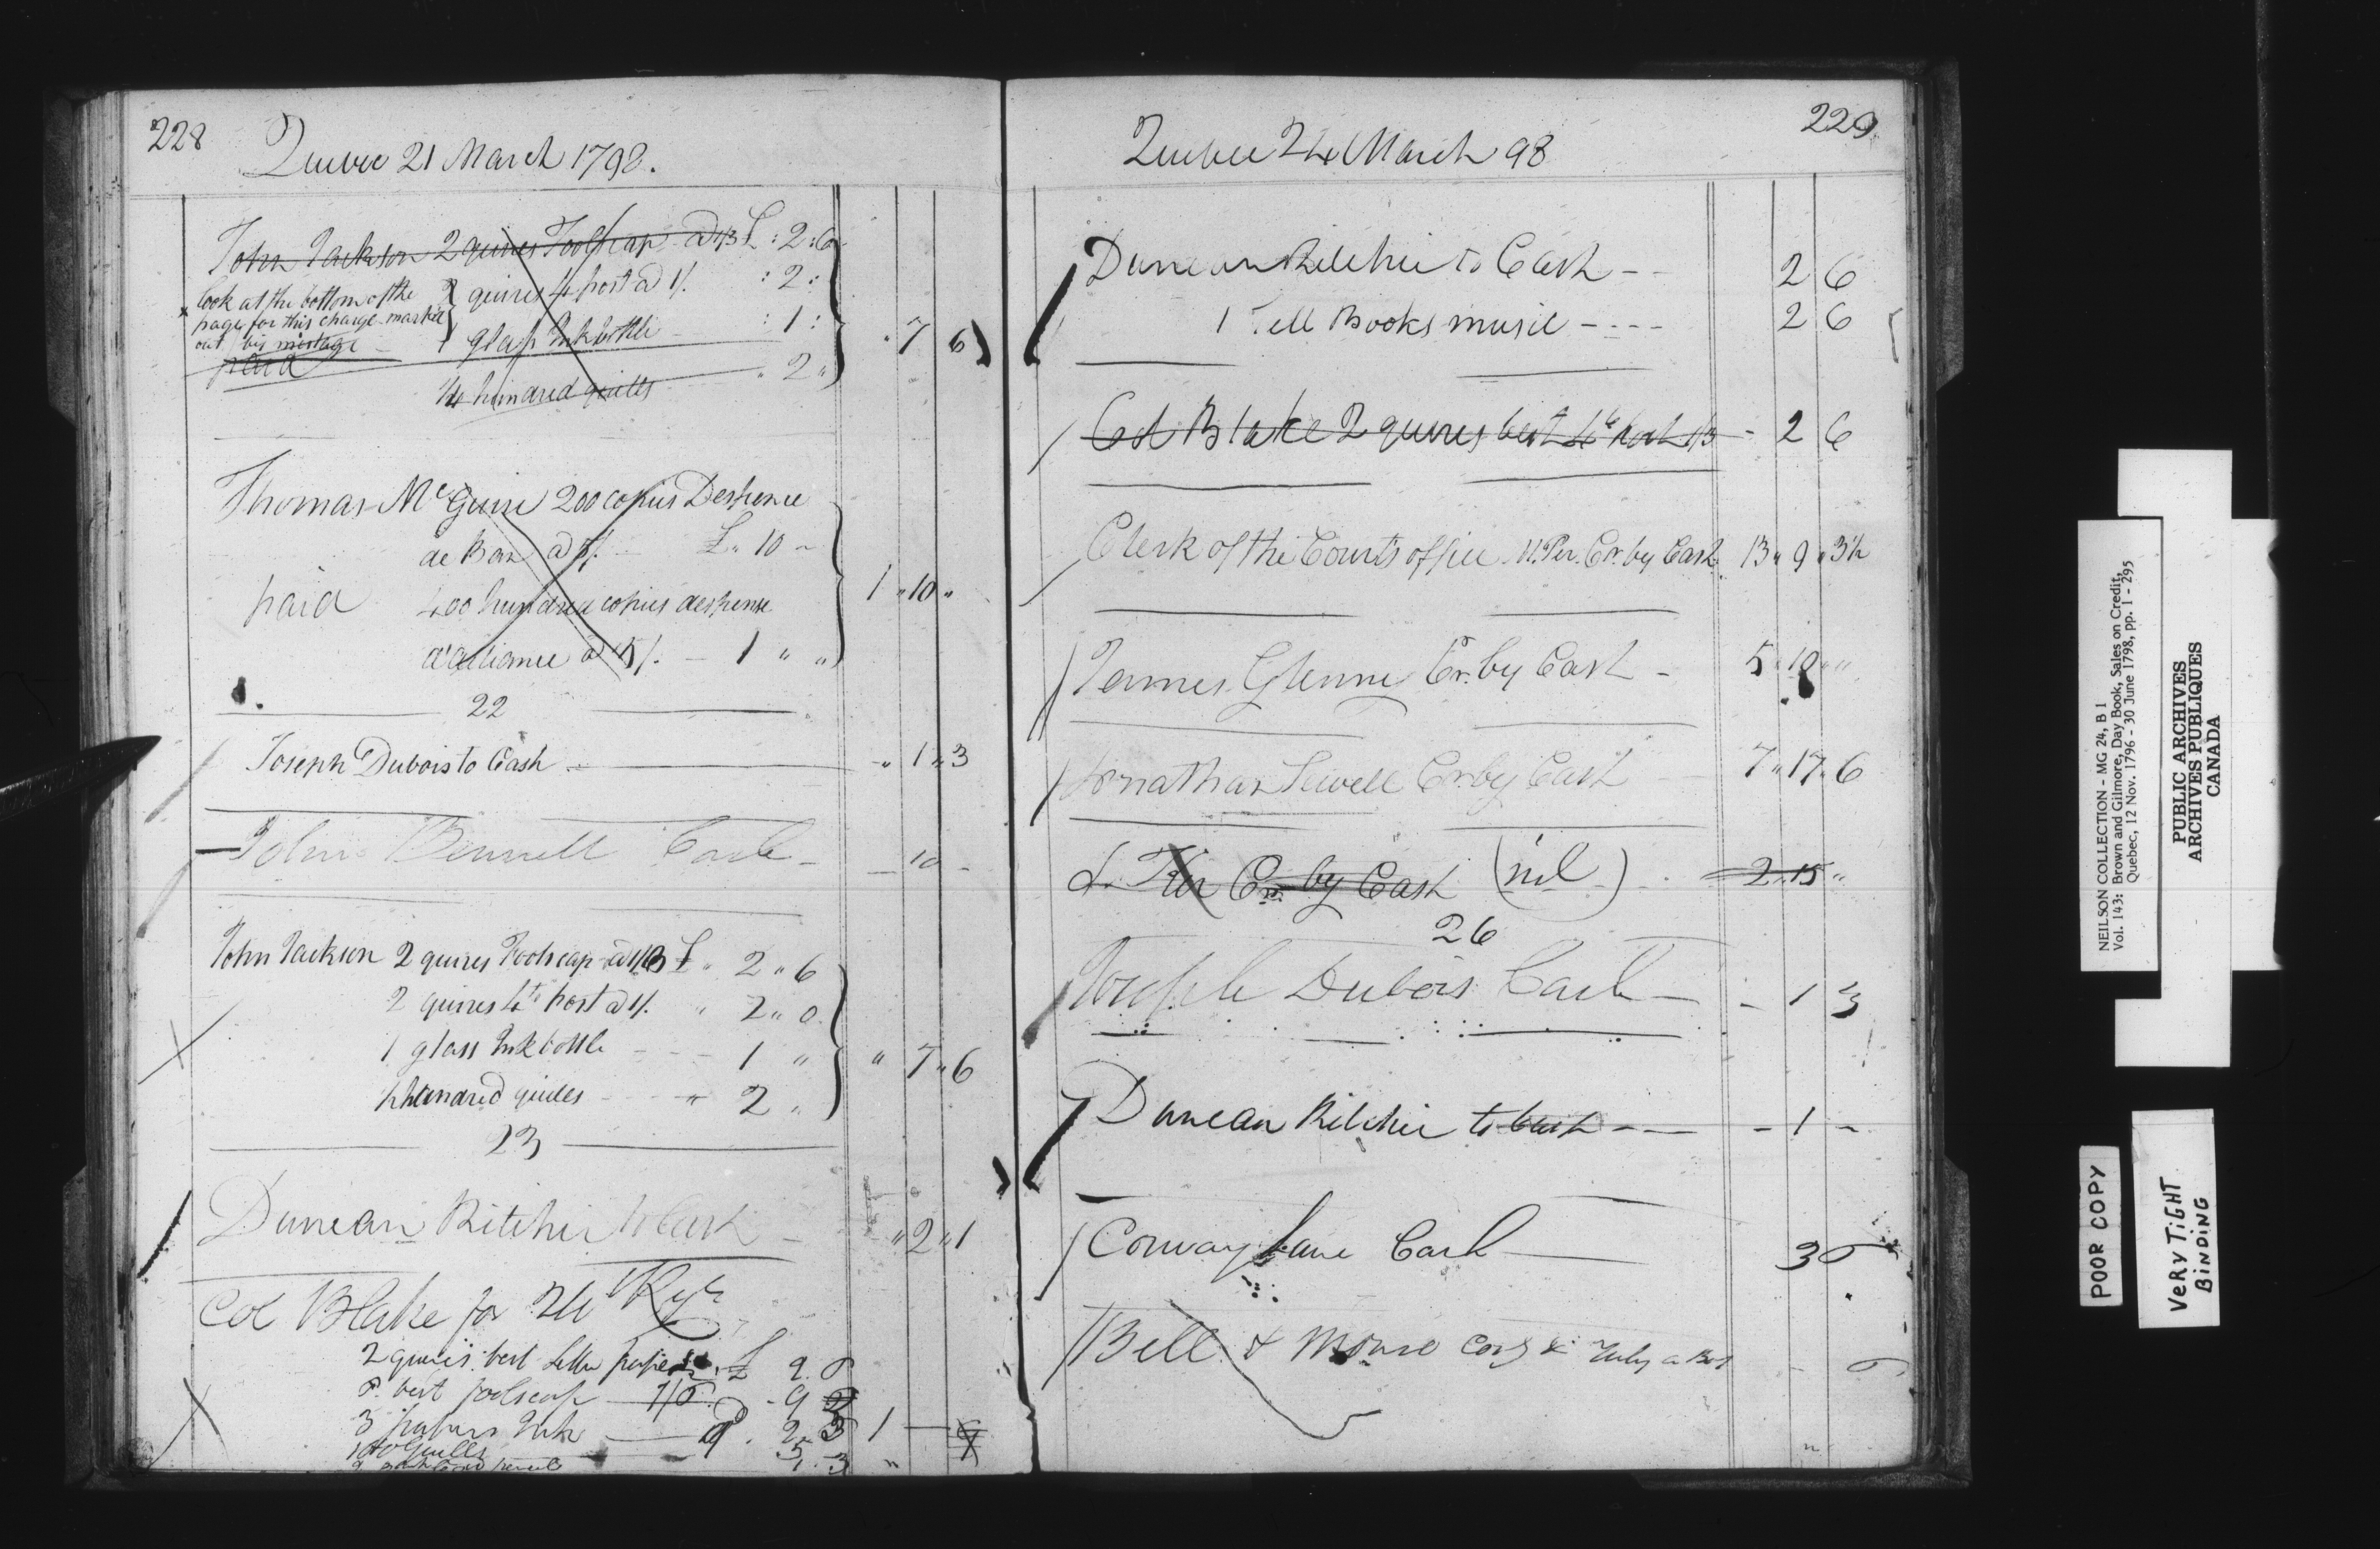 228
Quebec 21 March 1798.
John Jackson 2 quires Foolscap a 1/3 £ : 2 : 6
look at the bottom of the 2 quires 4 post a 1/. : 2 :
page for this charge marked
out by mistage 1 glass Ink bottle : 1 : 7 6
paid
1/4 hundred quills " 2 "
Thomas McGuire 200 copies Despence
de Ban a 5/. £ " 10 -
paid 400 hundred copies despense 1 " 10 "
d'alliance a 5/. - 1 " "
22
Joseph Dubois to Cash - " 1 " 3
John Bennett Cash - 10 -
John Jackson 2 quires Foolscap a 1/3 £ " 2 " 6
2 quires 4to post a 1/. " 2 " 0
1 glass Ink bottle - - - 1 " " 7 " 6
hundred quills - - - " 2 "
23
Duncan Ritchie to Cash - " 2 " 1
Col Blake for
2 quires best Letter paper £ 2. 6
6 best foolscap 1/6 - 9
3 papers Ink 9 . 2 3 1
100 Quills 5
pencil 1 . 3 "
229
Quebec 24 March 98
Duncan Ritchie to Cash - - 2 6
1 Tell Books music - - - - 2 6
Col Blake 2 quires best 4to post 1/3 - 2 6
Clerk of the Courts office Cr. by Cash 13 " 9 " 3 1/2
James Glenny Cr. by Cash - 5 " 10 " "
Jonathan Sewell Cr. by Cash 7 " 17 " 6
Cr. by Cash (nil) - 2 " 15 "
26
Joseph Dubois Cash - - 1 3
Duncan Ritchie to Cash - - - 1 -
Conway Lane Cash 3 6
Bell & - 6
NEILSON COLLECTION - MG 24, B 1
Vol. 143: Brown and Gilmore, Day Book, Sales on Credit,
Quebec, 12 Nov. 1796 - 30 June 1798, pp. 1 - 295
PUBLIC ARCHIVES
ARCHIVES PUBLIQUES
CANADA
POOR COPY
VERY TIGHT
BINDING